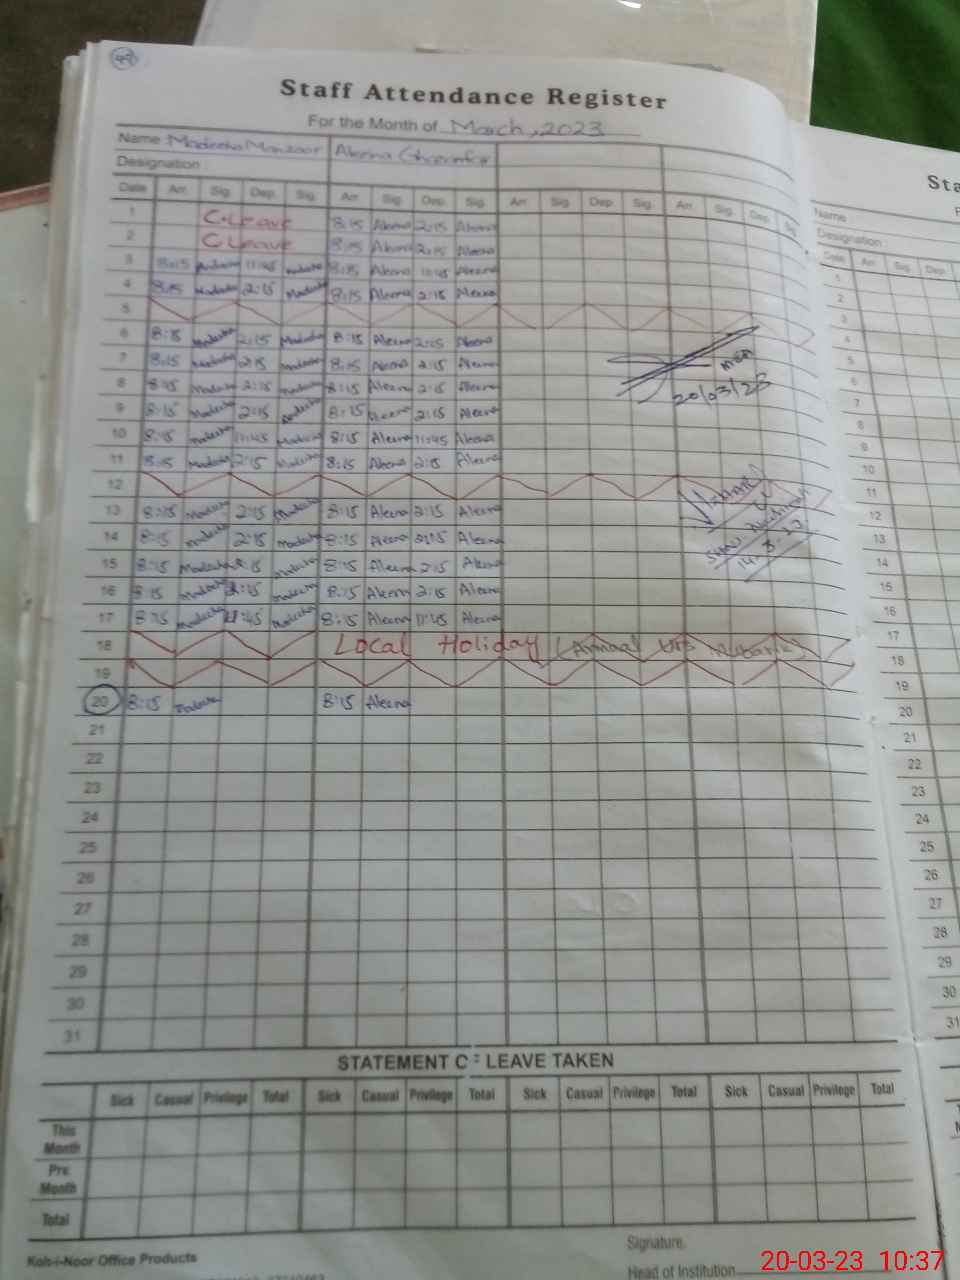 49
Staff Attendance Register
For the Month of March, 2023
Name : Madeeha Manzoor Aleena
Designation :
Date Arr. Sig. Dep. Sig. Arr. Sig. Dep. Sig. Arr. Sig. Dep. Sig. Arr. Sig. Dep. Sig.
1 C.Leave 8:15 Aleena 2:15 Aleena
2 C Leave 8:15 Aleena 2:15 Aleena
3 8:15 Madeeha 11:45 Madeeha 8:15 Aleena 11:45 Aleena
4 8:15 Madeeha 2:15 Madeeha 8:15 Aleena 2:15 Aleena
5
6 8:15 Madeeha 2:15 Madeeha 8:15 Aleena 2:15 Aleena
7 8:15 Madeeha 2:15 Madeeha 8:15 Aleena 2:15 Aleena
8 8:15 Madeeha 2:15 Madeeha 8:15 Aleena 2:15 Aleena
9 8:15 Madeeha 2:15 Madeeha 8:15 Aleena 2:15 Aleena
10 8:15 Madeeha 11:45 Madeeha 8:15 Aleena 11:45 Aleena
11 8:15 Madeeha 2:15 Madeeha 8:15 Aleena 2:15 Aleena
MEA
20/03/23
12
13 8:15 Madeeha 2:15 Madeeha 8:15 Aleena 2:15 Aleena
14 8:15 Madeeha 2:15 Madeeha 8:15 Aleena 2:15 Aleena
15 8:15 Madeeha 2:15 Madeeha 8:15 Aleena 2:15 Aleena
16 8:15 Madeeha 2:15 Madeeha 8:15 Aleena 2:15 Aleena
17 8:15 Madeeha 11:45 Madeeha 8:15 Aleena 11:45 Aleena
14.3.23
18 Local Holiday (Annual Urs
19
20 8:15 Madeeha 8:15 Aleena
21
22
23
24
25
26
27
28
29
30
31
STATEMENT OF LEAVE TAKEN
Sick Casual Privilege Total Sick Casual Privilege Total Sick Casual Privilege Total Sick Casual Privilege Total
This Month
Pre. Month
Total
Koh-i-Noor Office Products
Signature.
Head of Institution
Sta
Name
Designation :
Date Arr. Sig. Dep.
1
2
3
4
5
6
7
8
9
10
11
12
13
14
15
16
17
18
19
20
21
22
23
24
25
26
27
28
29
30
31
20-03-23 10:37